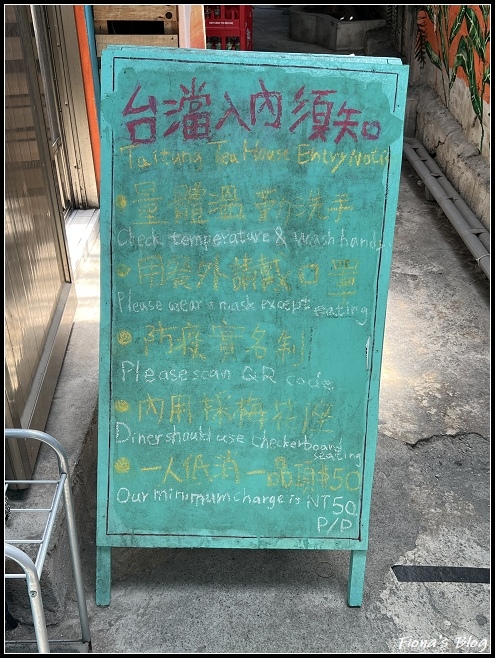 台當入內須知
Taitung Tea House Entry Notic
• 量體溫 手洗手
Check temperature & wash hands
• 用餐外請戴口罩
Please wear a mask except eating
• 防疫實名制
Please scan QR code
• 內用採梅花座
Diner should use checkerboard seating
• 一人低消一品項$50
Our minimum charge is NT50
P/P
Fiona's Blog